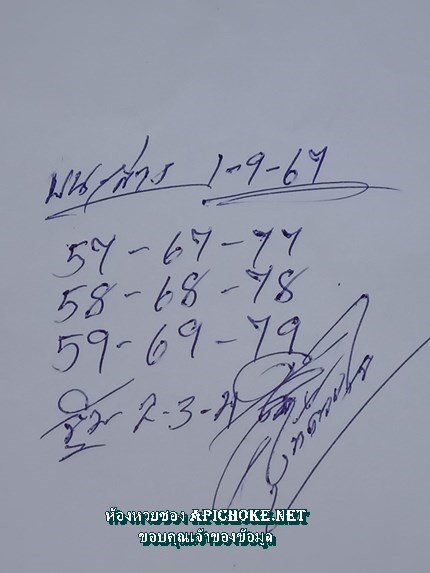 1-9-67
57-67-77
58-68-78
59-69-79
2-3-4
ห้องหวยซอง APICHOKE.NET
ขอบคุณเจ้าของข้อมูล